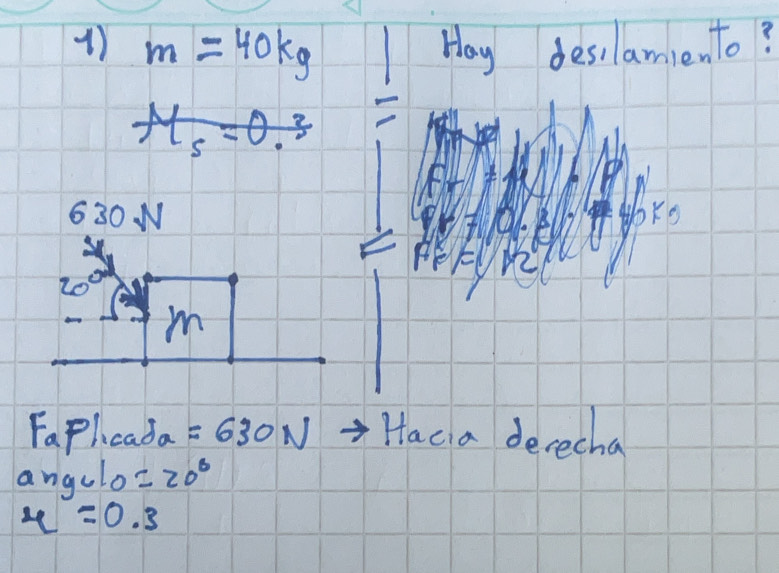 1) m = 40kg
Ms = 0.3
630 N
20°
m
Hay desilamiento?
Faplicada = 630N → Hacia derecha
angulo = 20°
u = 0.3